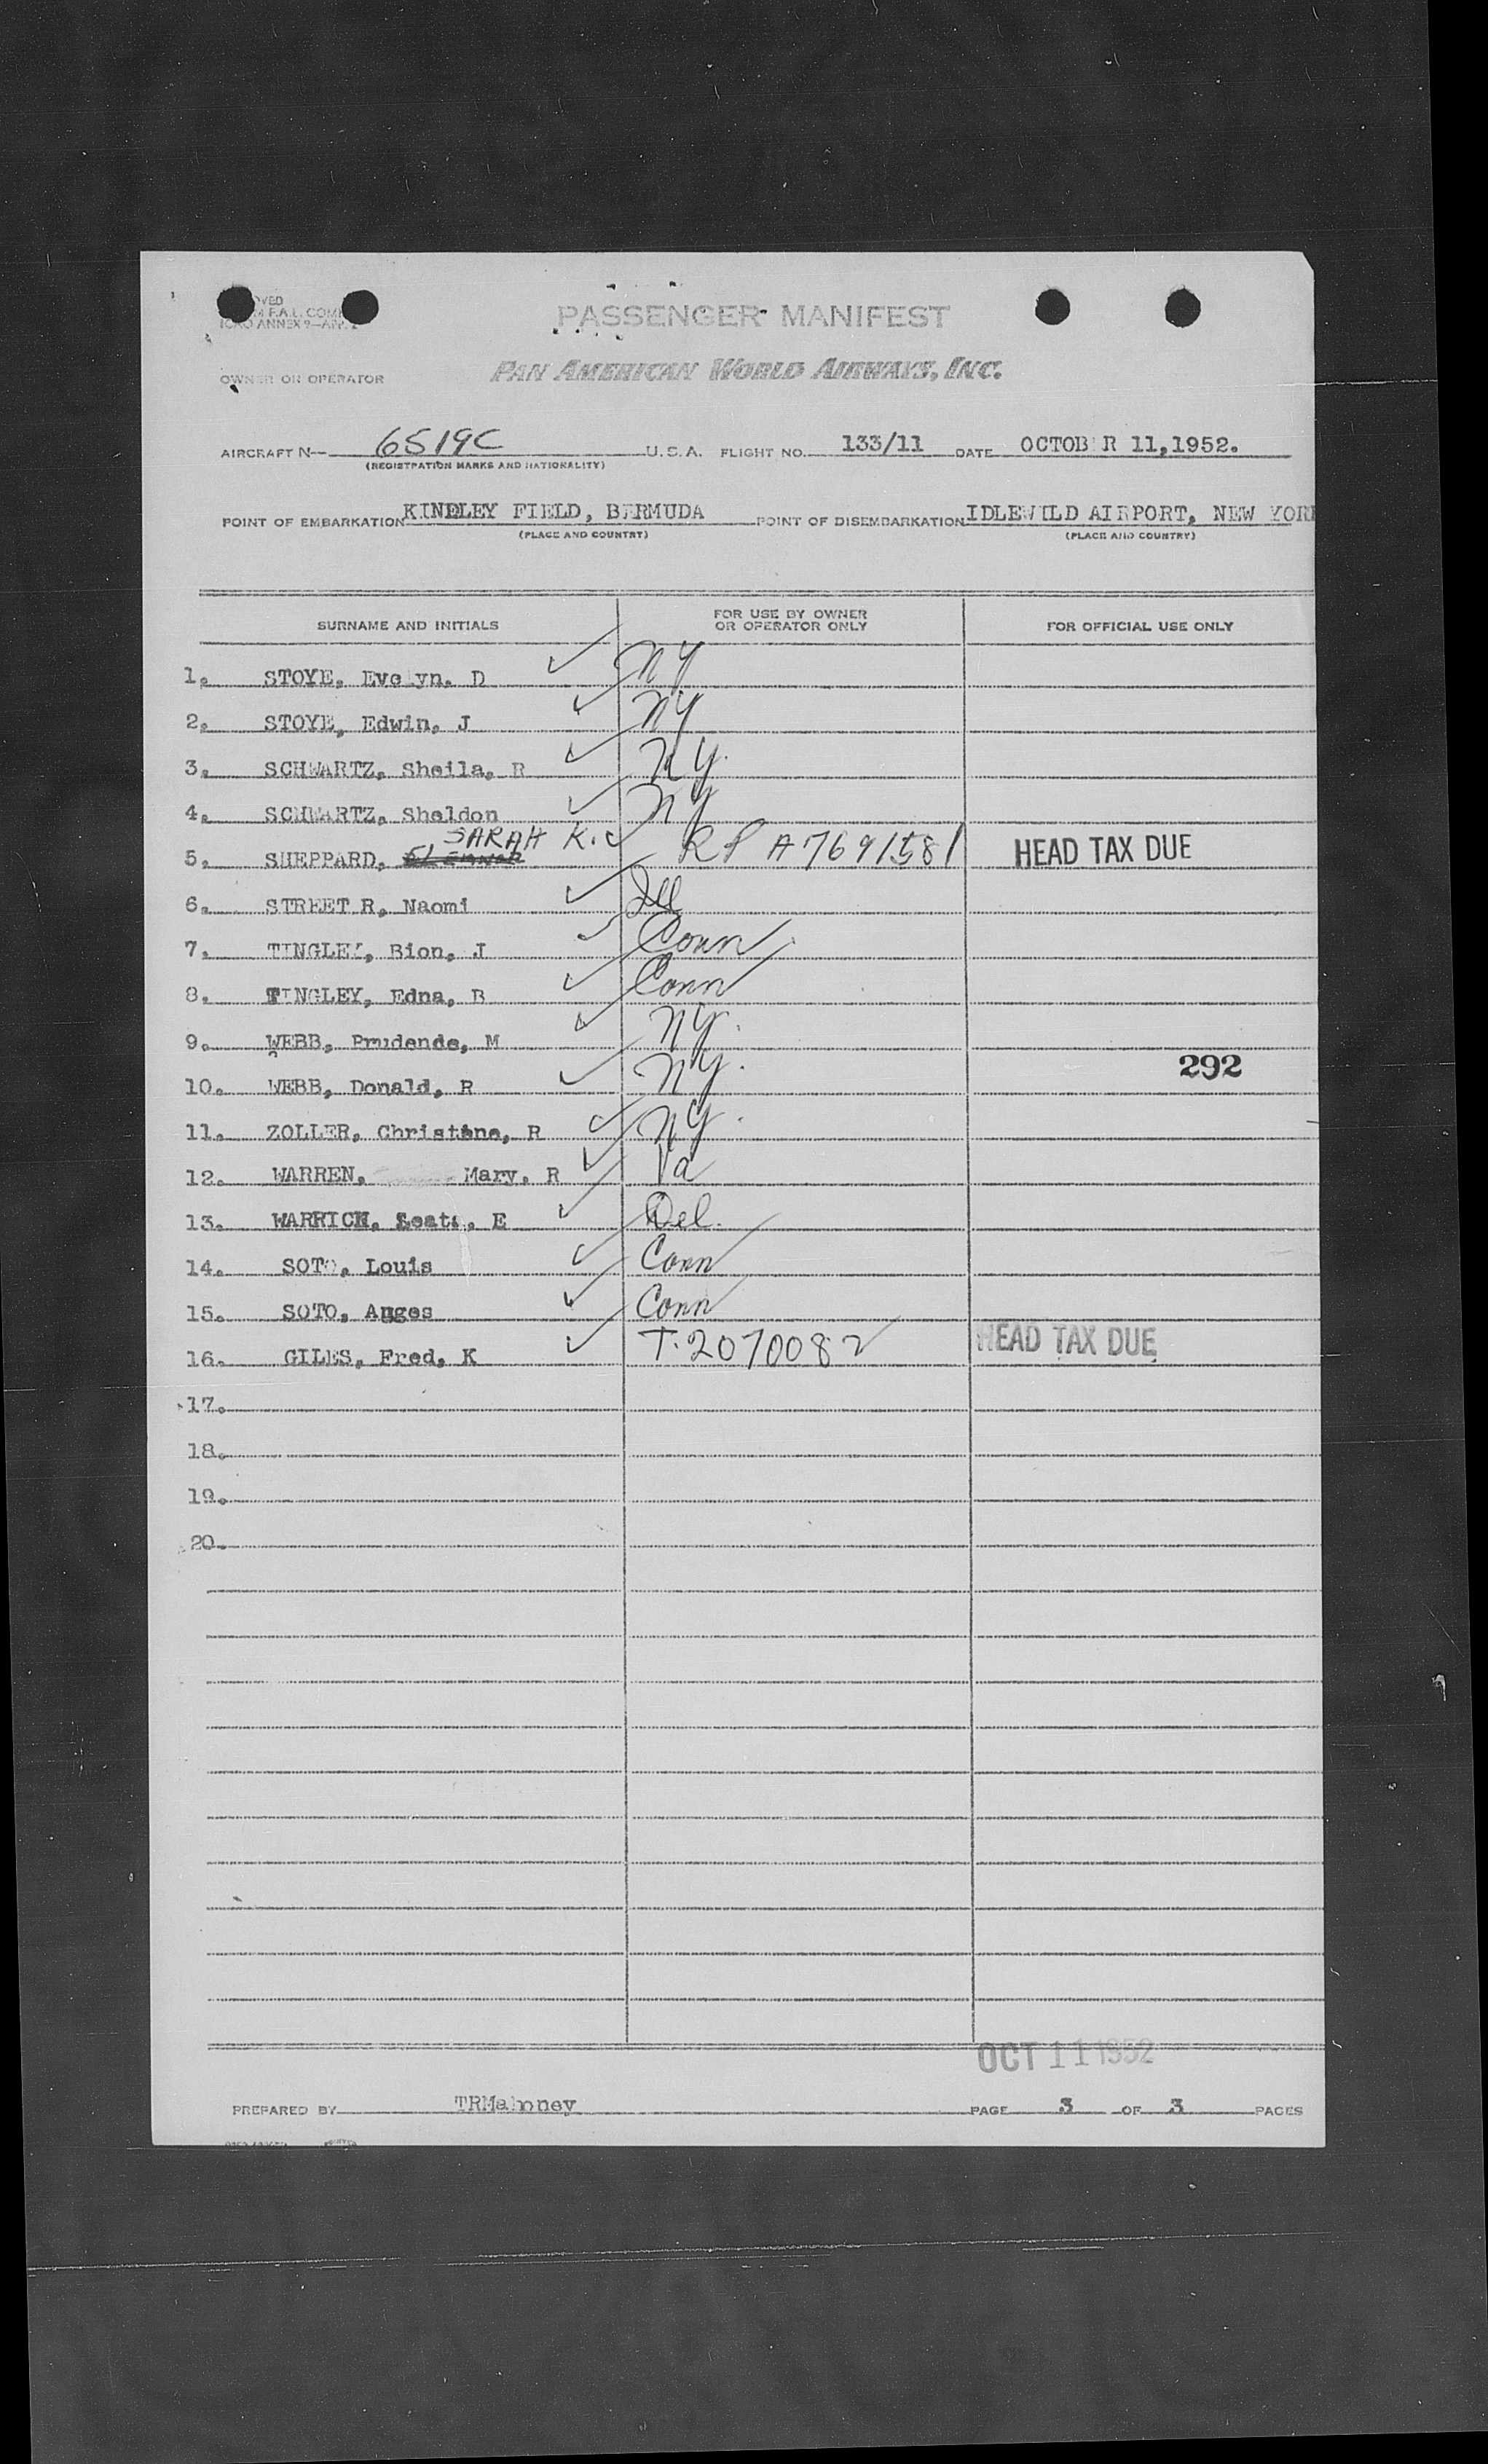 PASSENGER MANIFEST
ICAO ANNEX 9—APP. 2
OWNER OR OPERATOR PAN AMERICAN WORLD AIRWAYS, INC.
AIRCRAFT N— 6519C U.S.A. FLIGHT NO. 133/11 DATE OCTOB R 11,1952.
(REGISTRATION MARKS AND NATIONALITY)
POINT OF EMBARKATION KINDLEY FIELD, BERMUDA POINT OF DISEMBARKATION IDLEWILD AIRPORT, NEW YORK
(PLACE AND COUNTRY) (PLACE AND COUNTRY)
SURNAME AND INITIALS FOR USE BY OWNER OR OPERATOR ONLY FOR OFFICIAL USE ONLY
1. STOYE, Evelyn. D NY
2. STOYE, Edwin, J NY
3. SCHWARTZ, Sheila, R NY.
4. SCHWARTZ, Sheldon NY
SARAH K.
5. SHEPPARD, ELEANOR RP A7691581 HEAD TAX DUE
6. STREET R, Naomi Ill
7. TINGLEY, Bion, J Conn
8. TINGLEY, Edna, B Conn
9. WEBB, Prudende, M NY.
292
10. WEBB, Donald, R NY.
11. ZOLLER, Christine, R NY.
12. WARREN, Mary, R Va
13. WARRICK, E Del.
14. SOTO, Louis Conn
15. SOTO, Auges Conn
16. GILES, Fred, K T-2070082 HEAD TAX DUE
17.
18.
19.
20.
OCT 11 1952
PREPARED BY TRMahoney PAGE 3 OF 3 PAGES